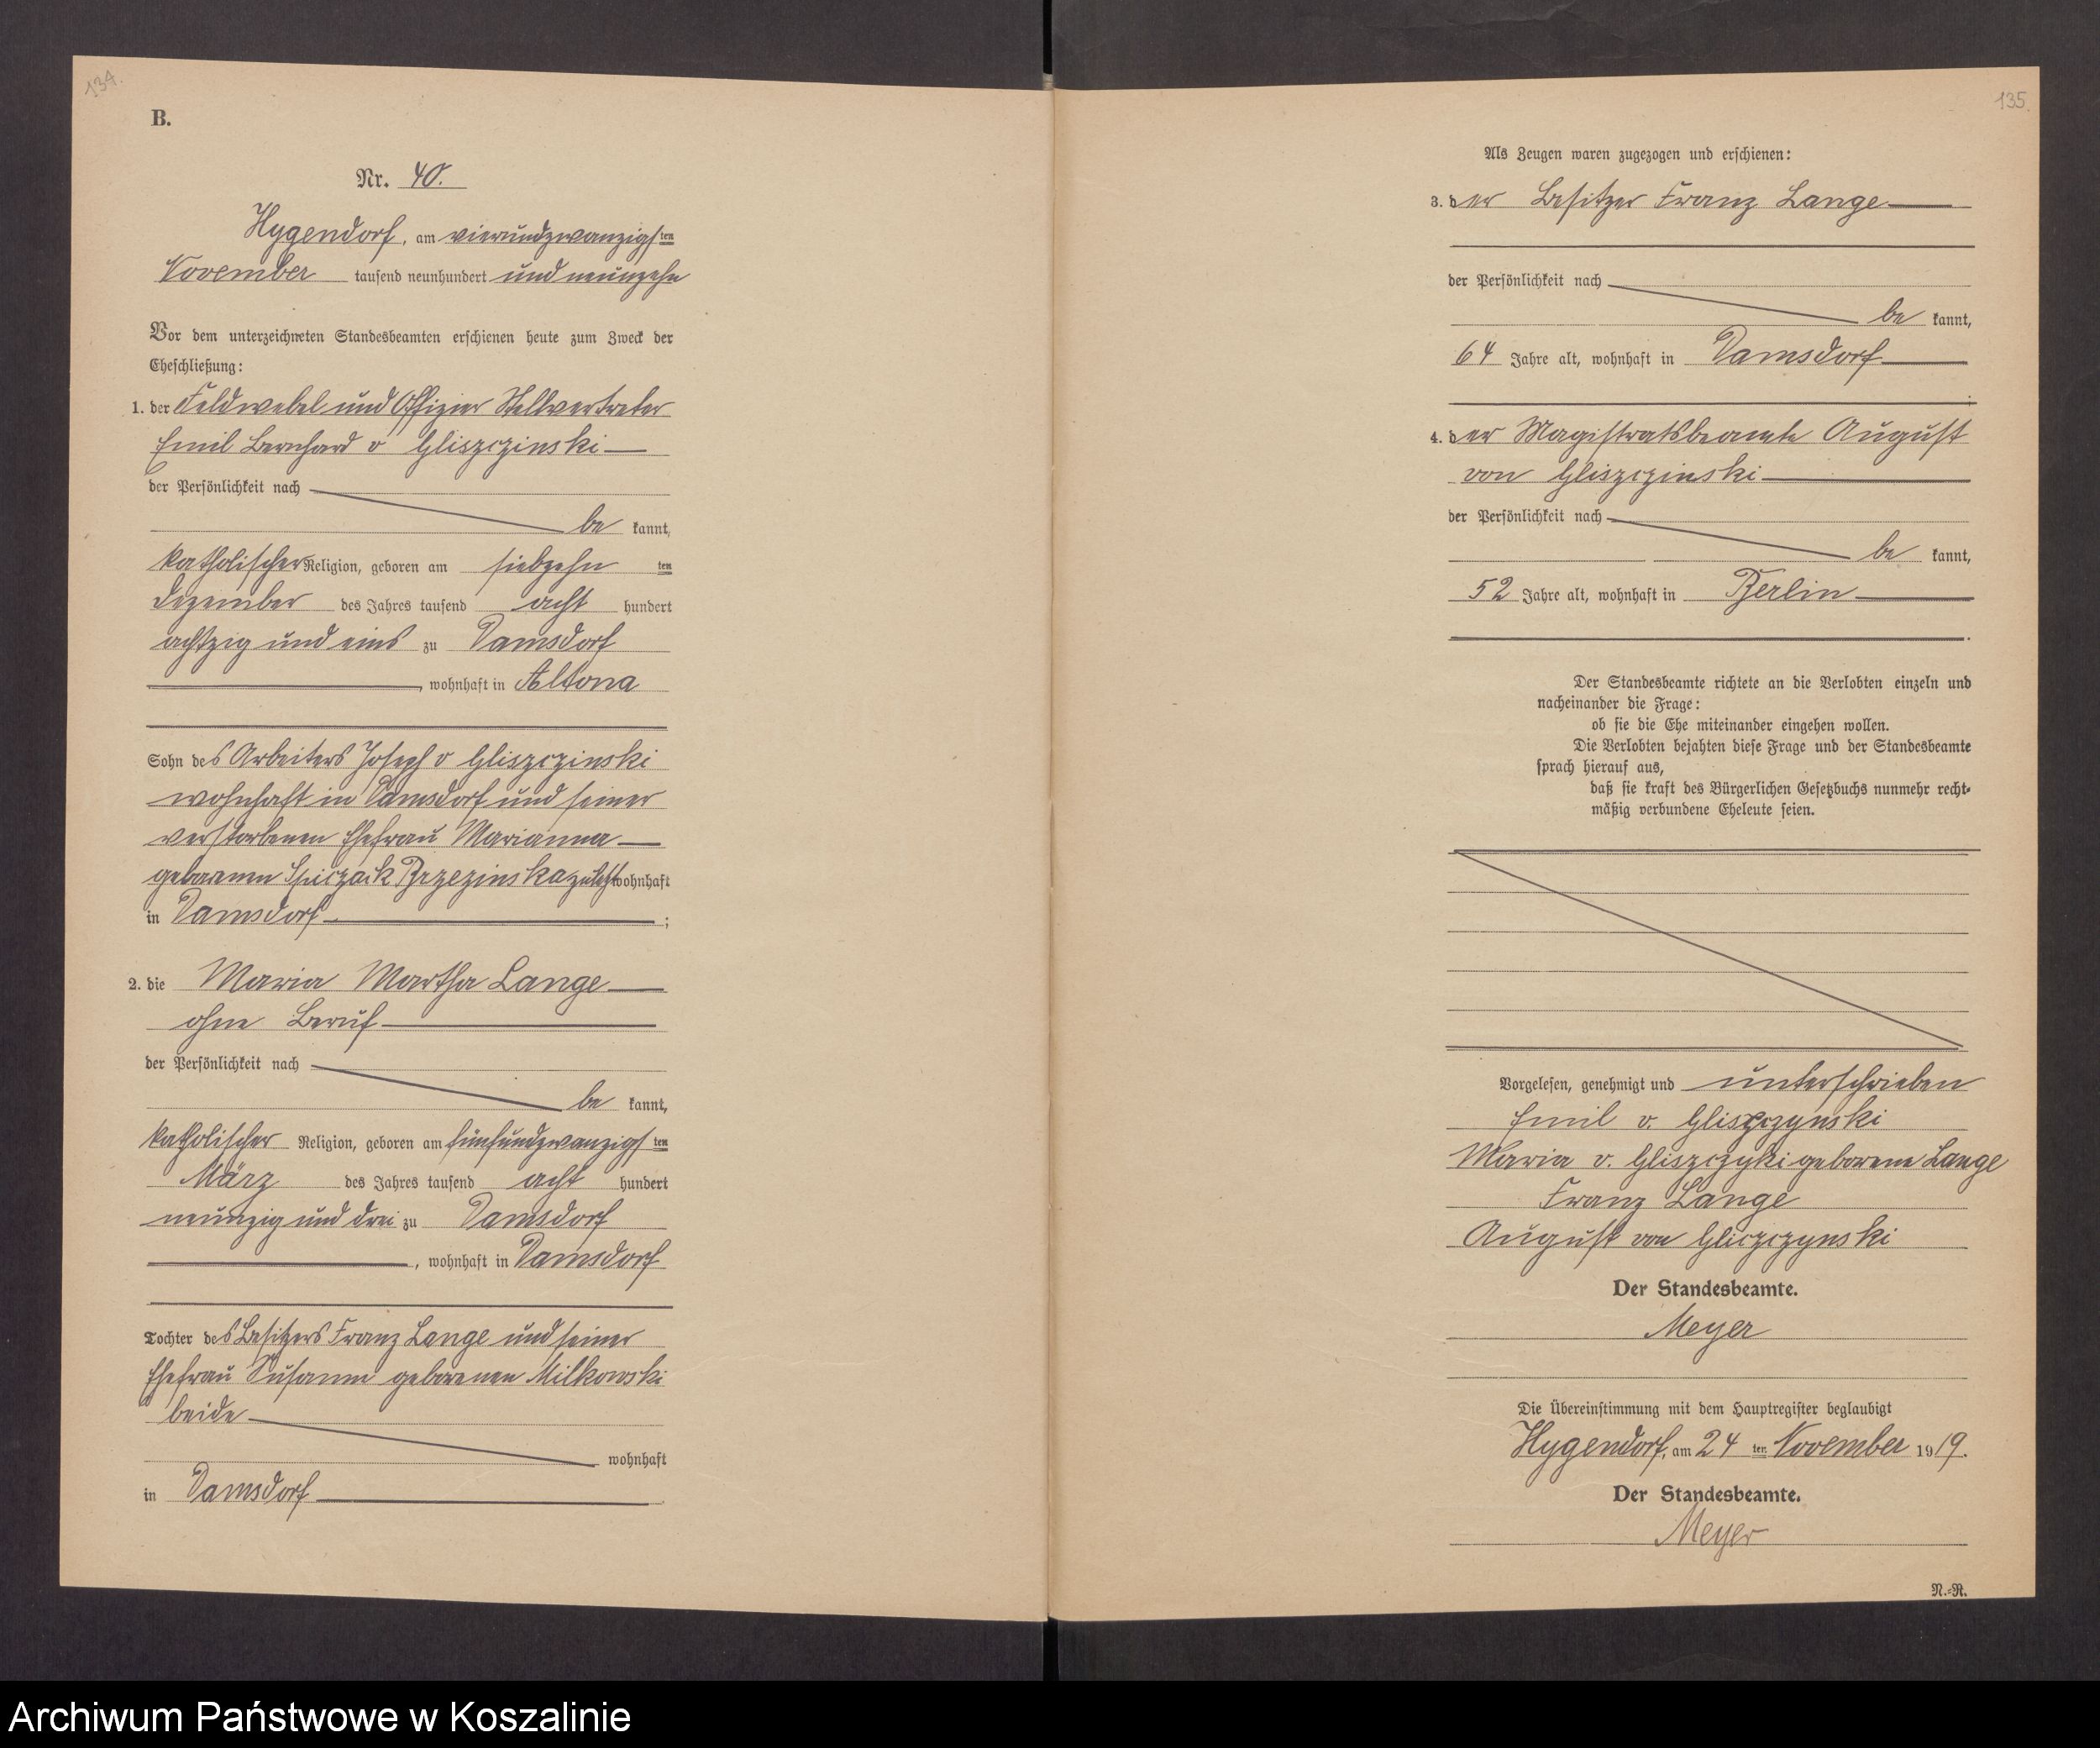 134.
B.
Nr. 40.
Hygendorf, am vierundzwanzigsten
November tausend neunhundert und neunzehn
Vor dem unterzeichneten Standesbeamten erschienen heute zum Zweck der
Eheschließung:
1. der Feldwebel und Offizier Stellvertreter
Emil Bernhard v Gliszczinski
der Persönlichkeit nach
be kannt,
katholischer Religion, geboren am siebzehn ten
Dezember des Jahres tausend acht hundert
achtzig und eins zu Damsdorf
, wohnhaft in Altona
Sohn des Arbeiters Joseph v Gliszczinski
wohnhaft in Damsdorf und seiner
verstorbenen Ehefrau Marianna
geborenen Spiczack Brzezinska zuletzt wohnhaft
in Damsdorf ;
2. die Maria Martha Lange
ohne Beruf
der Persönlichkeit nach
be kannt,
katholischer Religion, geboren am fünfundzwanzigsten
März des Jahres tausend acht hundert
neunzig und drei zu Damsdorf
, wohnhaft in Damsdorf
Tochter des Besitzers Franz Lange und seiner
Ehefrau Susanne geborenen Milkowski
beide
wohnhaft
in Damsdorf
135.
Als Zeugen waren zugezogen und erschienen:
3. der Besitzer Franz Lange
der Persönlichkeit nach
be kannt,
64 Jahre alt, wohnhaft in Damsdorf
;
4. der Magistratsbeamte August
von Gliszczinski
der Persönlichkeit nach
be kannt,
52 Jahre alt, wohnhaft in Berlin
.
Der Standesbeamte richtete an die Verlobten einzeln und
nacheinander die Frage:
ob sie die Ehe miteinander eingehen wollen.
Die Verlobten bejahten diese Frage und der Standesbeamte
sprach hierauf aus,
daß sie kraft des Bürgerlichen Gesetzbuchs nunmehr recht-
mäßig verbundene Eheleute seien.
Vorgelesen, genehmigt und unterschrieben
Emil v. Gliszczynski
Maria v. Gliszczyki geborene Lange
Franz Lange
August von Gliczczynski
Der Standesbeamte.
Meyer
Die Übereinstimmung mit dem Hauptregister beglaubigt
Hygendorf, am 24 ten November 1919.
Der Standesbeamte.
Meyer
N.-R.
Archiwum Państwowe w Koszalinie